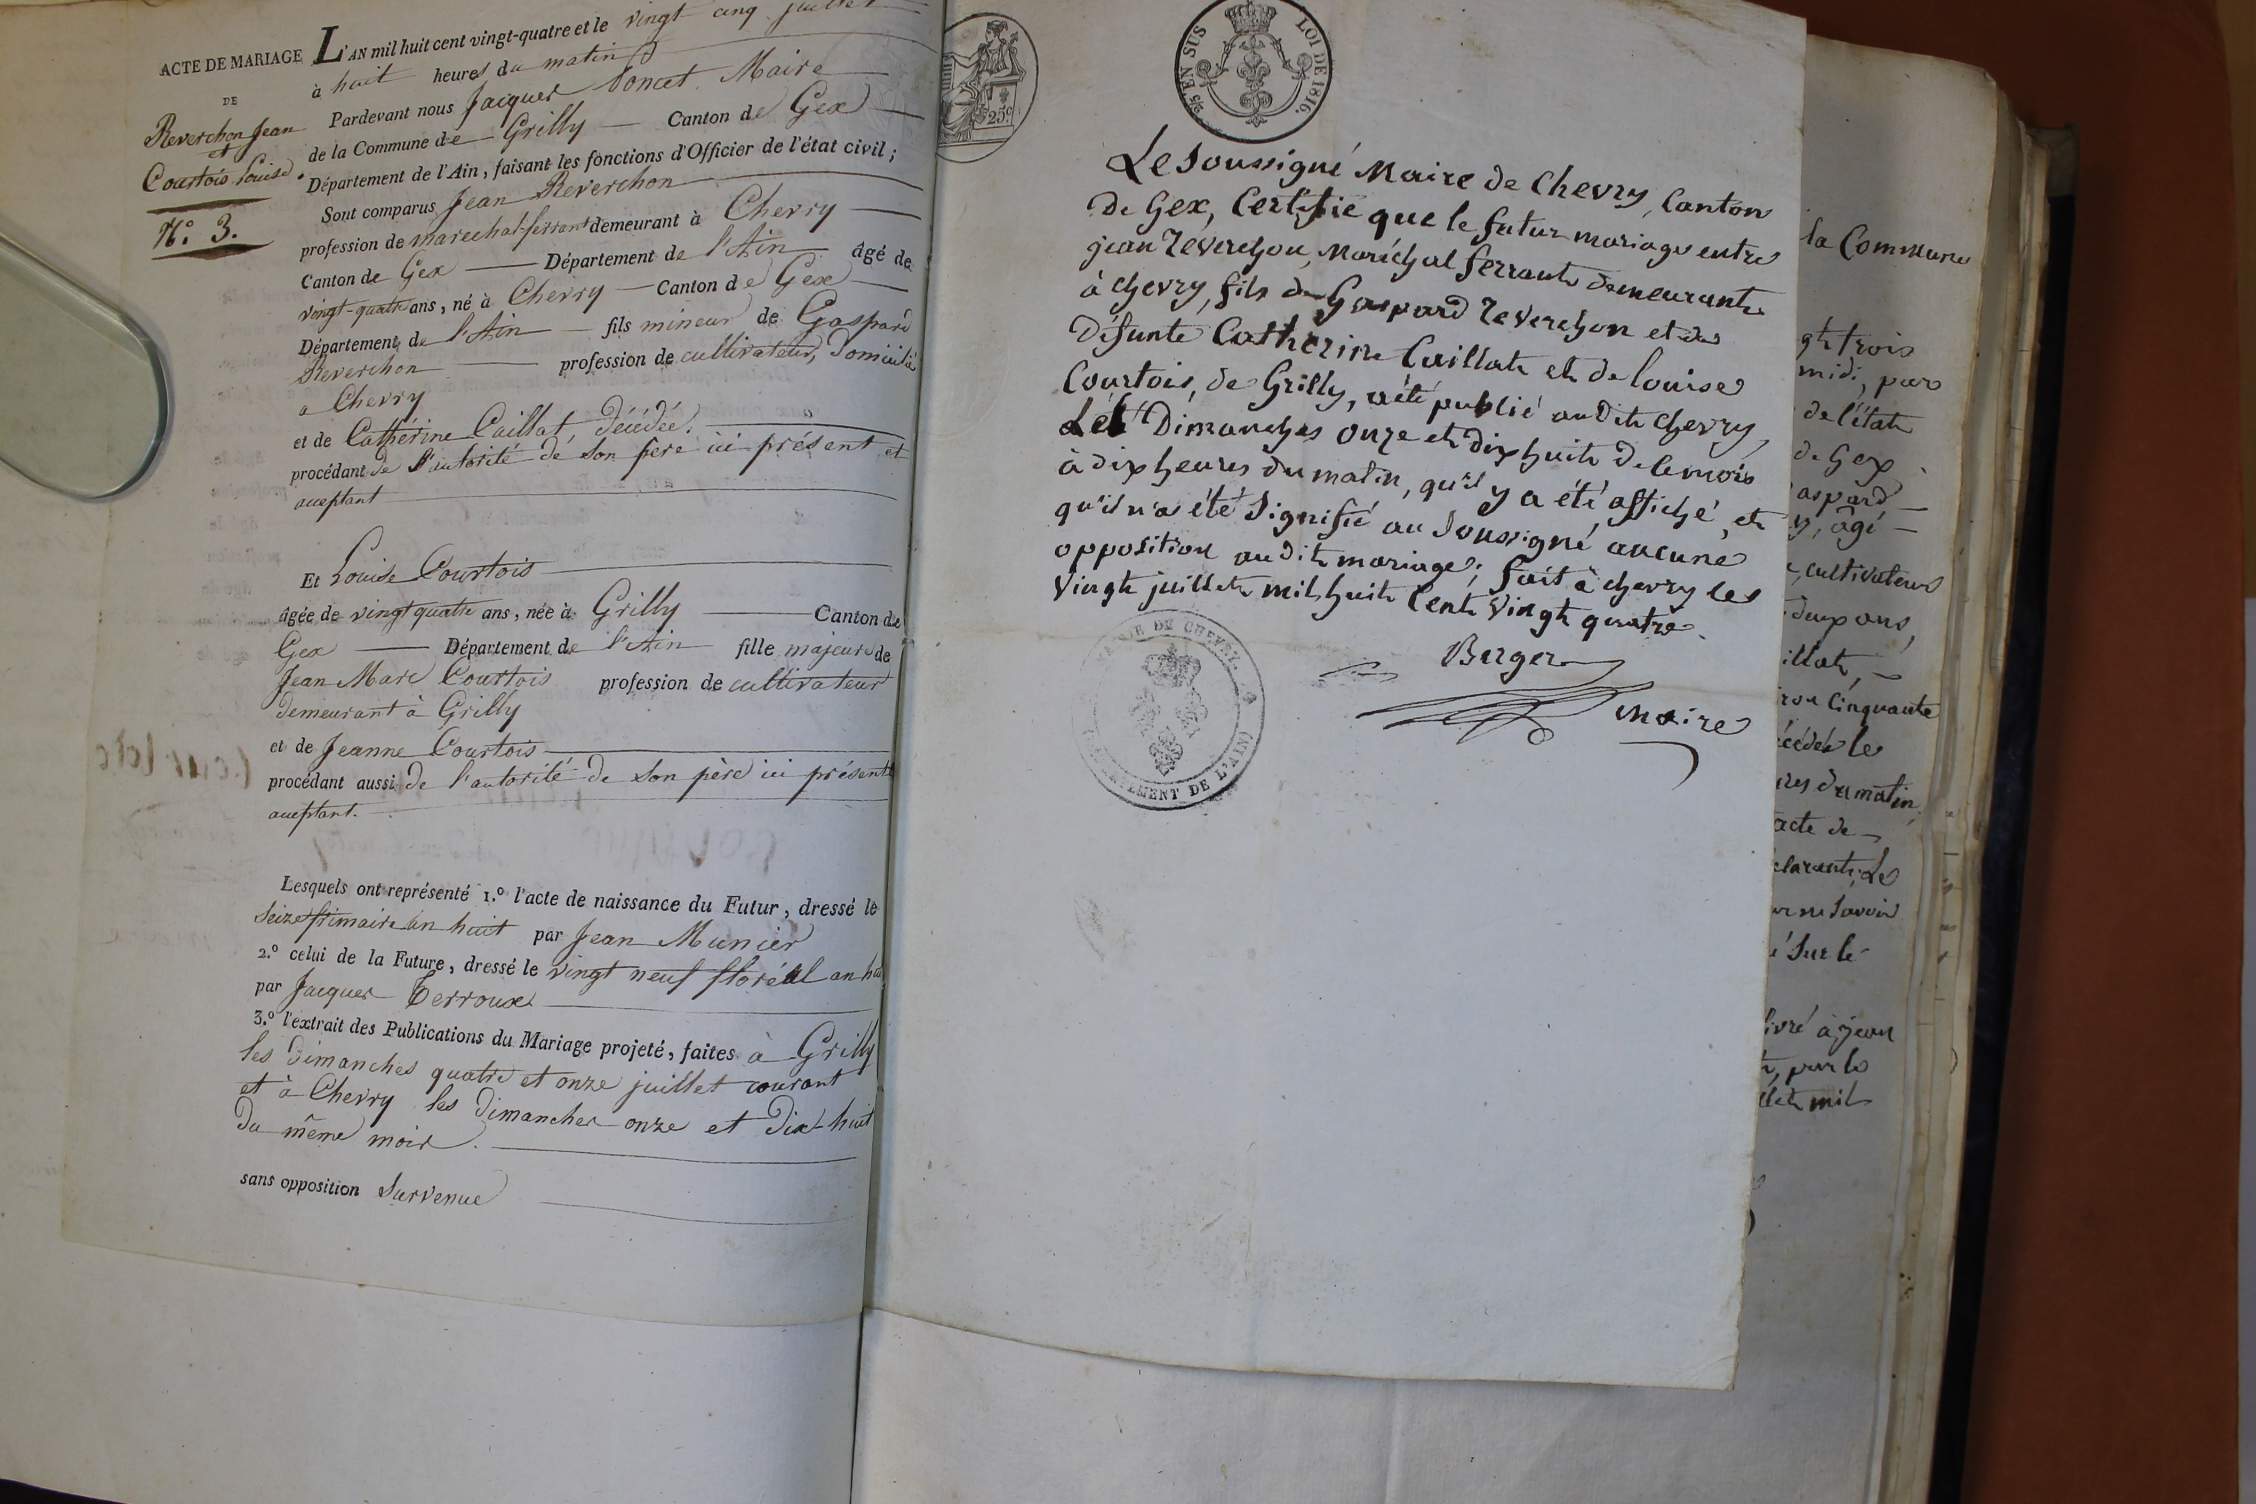 ACTE DE MARIAGE
DE
Reverchon Jean
et
Courtois Louise.
N.° 3.
L'AN mil huit cent vingt-quatre et le vingt cinq juillet
à huit heures du matin
Pardevant nous Jacques Poncet Maire
de la Commune de Grilly Canton de Gex
Département de l'Ain, faisant les fonctions d'Officier de l'état civil ;
Sont comparus Jean Reverchon
profession de marechal-ferrant demeurant à Chevry
Canton de Gex Département de l'Ain âgé de
vingt-quatre ans, né à Chevry Canton de Gex
Département de l'Ain fils mineur de Gaspard
Reverchon profession de cultivateur, domicilié
a Chevry
et de Cathérine Caillat, décédée.
procédant de l'autorité de son père ici présent et
acceptant
Et Louise Courtois
âgée de vingt quatre ans, née à Grilly Canton de
Gex Département de l'Ain fille majeure de
Jean Marc Courtois profession de cultivateur
demeurant à Grilly
et de Jeanne Courtois
procédant aussi de l'autorité de son père ici présent
acceptant.
Lesquels ont représenté 1.° l'acte de naissance du Futur, dressé le
seize frimaire an huit par Jean Munier
2.° celui de la Future, dressé le vingt neuf floréal an
par Jacques Terroux
3.° l'extrait des Publications du Mariage projeté, faites à Grilly
les dimanches quatre et onze juillet courant
et à Chevry les dimanches onze et dix-huit
du même mois.
sans opposition survenue
25c
5/6 EN SUS
LOI DE 1816.
Le Soussigné Maire de Chevry, Canton
de Gex, Certifie que le futur mariage entre
jean Reverchon, Maréchal ferrant demeurant
à chevry, fils de Gaspard Reverchon et de
défunte Catherine Caillat et de louise
Courtois, de Grilly, a été publié audit chevry,
Les Dimanches onze et dix huit de ce mois
à dix heures du matin, qu'il y a été affiché, et
qu'il n'a été Signifié au Soussigné aucune
opposition audit mariage; fait à chevry le
vingt juillet mil huit Cent vingt quatre.
Berger
maire
MAIRIE DE CHEVRY
DÉPARTEMENT DE L'AIN
la Commune
trois
midi, par
de l'état
de Gex
aspard
y, âgé
cultivateur
deux ans,
illat,
Cinquante
écédée le
du matin
acte de
Le
Savoir
Sur le
livré à jean
par le
mil